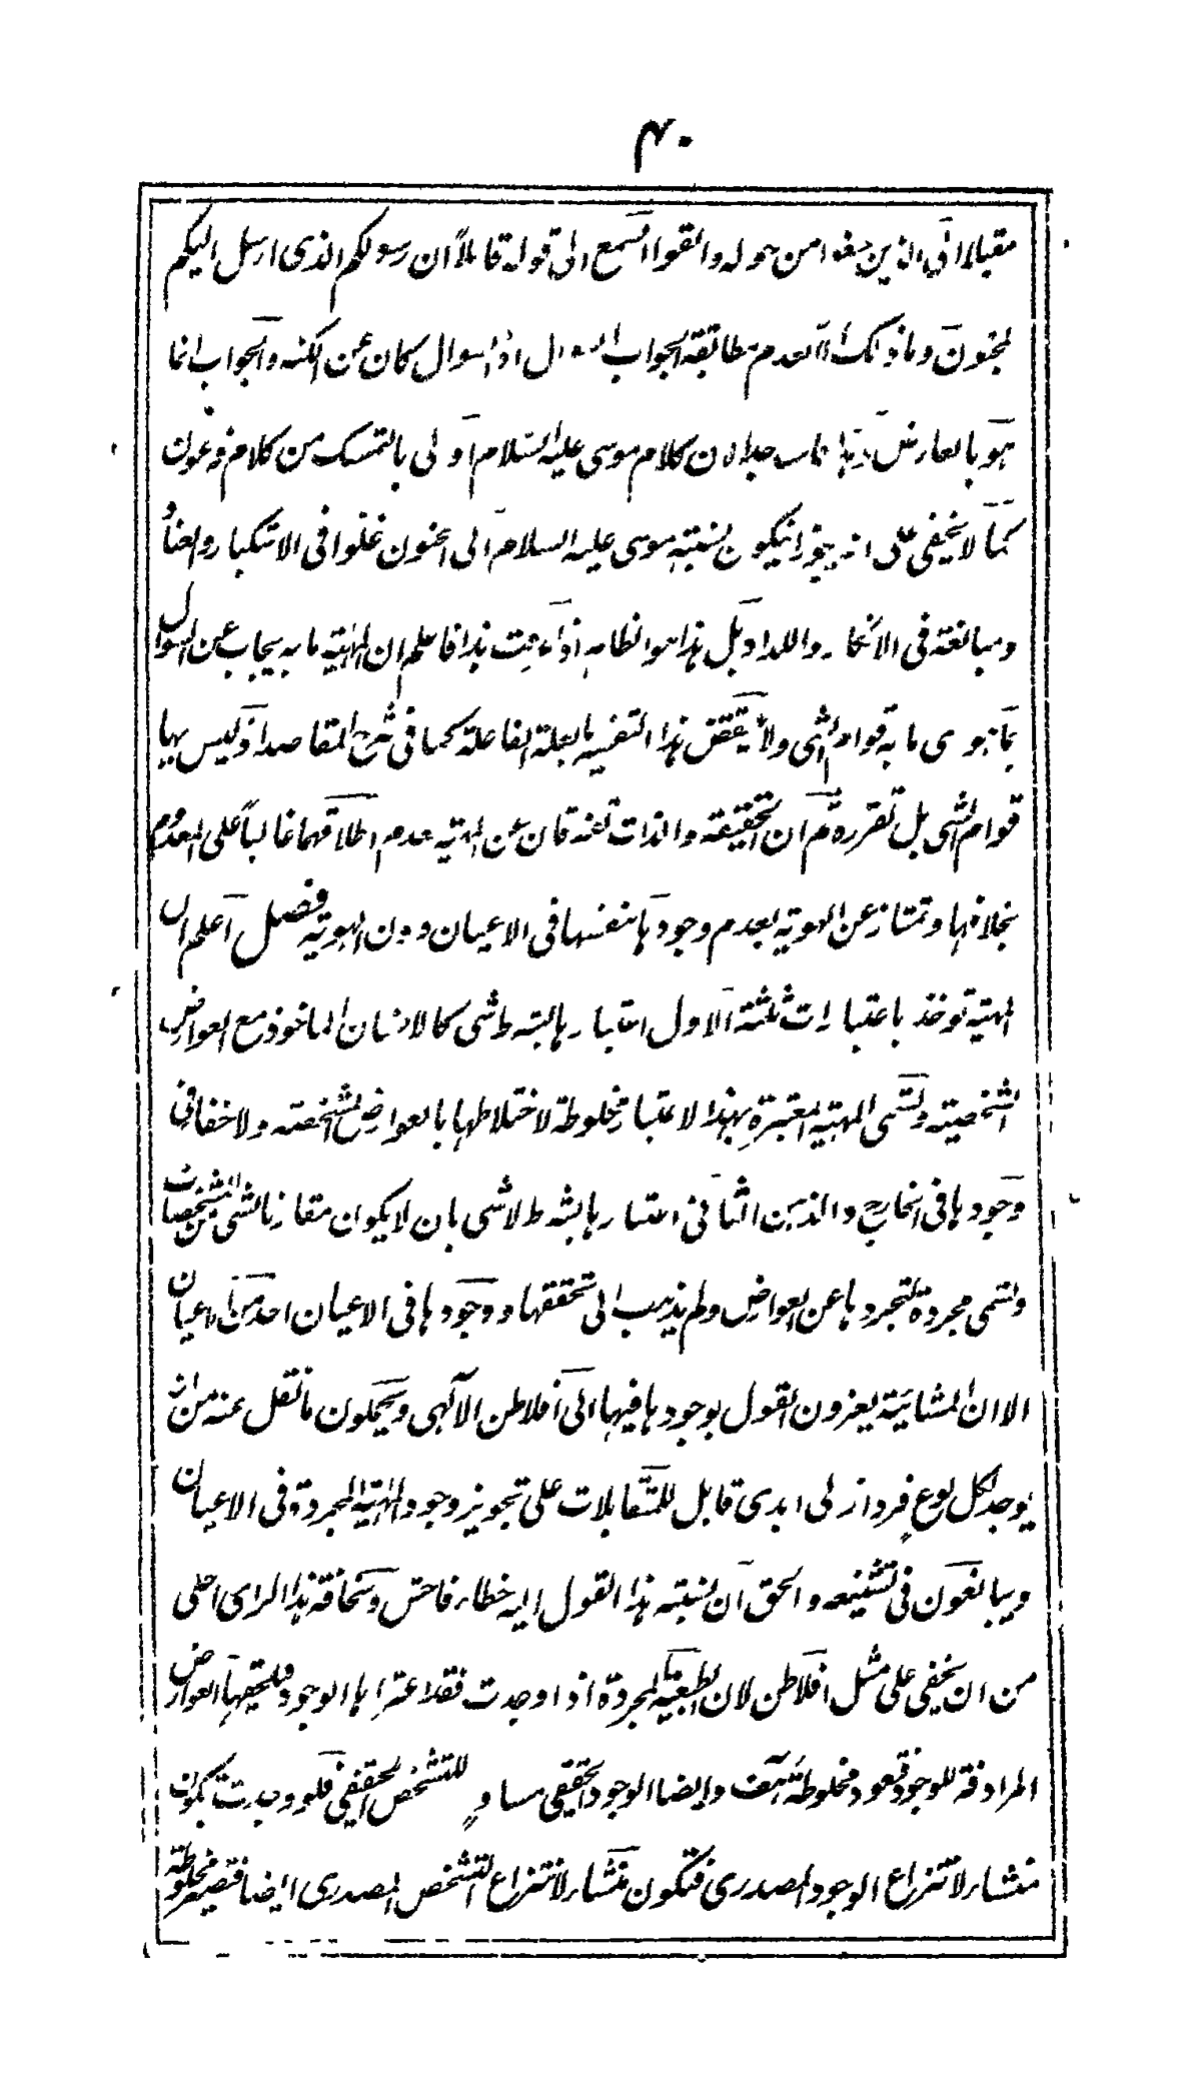 ۴۰
مقبلا الی الذین بقوا من حوله والقوا السمع الی قوله قائلاً ان رسولکم الذی ارسل الیکم
لمجنون وما ذلک الا لعدم مطابقة الجواب السوال اذ السوال کان عن الکنه والجواب انما
هو بالعارض هذا لان کلام موسی علیه السلام اولی بالتمسک من کلام فرعون
کما لا یخفی علی انه یجوز ان یکون نسبته موسی علیه السلام الی الجنون غلوا فی الاستکبار والعناد
ومبالغة فی الانکار واللداد بل هذا هو الظاهر اذا عرفت هذا فاعلم ان المهیة ما به یجاب عن السوال
بما هو ای ما به قوام الشی ولا ینقض هذا التفسیر بالعلة الفاعلة کما فی شرح المقاصد اذ لیس بها
قوام الشی بل تقرره ثم ان الحقیقة والذات تفترقان عن المهیة بعدم اطلاقهما غالباً علی المعدوم
بخلافها وتمتاز عن الهویة بعدم وجودها بنفسها فی الاعیان دون الهویة فصل اعلم ان
المهیة توخذ باعتبارات ثلثة الاول اعتبارها بشرط شی کالانسان الماخوذ مع العوارض
الشخصیة وتسمی المهیة المعتبرة بهذا الاعتبار مخلوطة لاختلاطها بالعوارض الشخصة ولا خفا فی
وجودها فی الخارج والذهن الثانی اعتبارها بشرط لا شی بان لا یکون مقارنا لشی من المشخصات
وتسمی مجردة لتجردها عن العوارض ولم یذهب الی تحققها ووجودها فی الاعیان احد من الاعیان
الا ان المشائیة یعزون القول بوجودها فیها الی افلاطن الآلهی ویحملون ما نقل عنه من ان
یوجد لکل نوع فرد ازلی ابدی قابل للمتقابلات علی تجویز وجود المهیة المجردة فی الاعیان
ویبالغون فی تشنیعه والحق ان نسبته هذا القول الیه خطاء فاحش وسخافة هذا الرای اجلی
من ان یخفی علی مثل افلاطن لان الطبیعة المجردة اذا وجدت فقد اعتراها الوجود فلحقها العوارض
المرادفة للوجود فتعود مخلوطة هف وایضا الوجود الحقیقی مساوٍ للتشخص الحقیقی فلو وجدت تکون
منشاء لانتزاع الوجود المصدری فتکون منشاء لانتزاع التشخص المصدری ایضا فتصیر مخلوطة